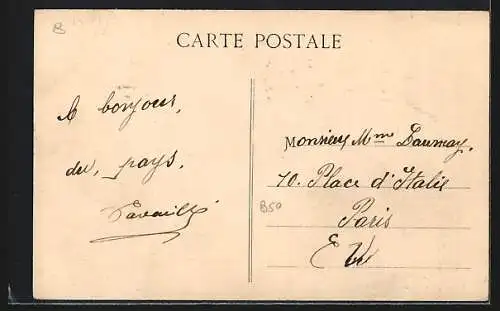 B
CARTE POSTALE
bonjour,
du, pays.
Monsieur Mme Daumay.
10. Place d'Italie
B50
Paris
E V